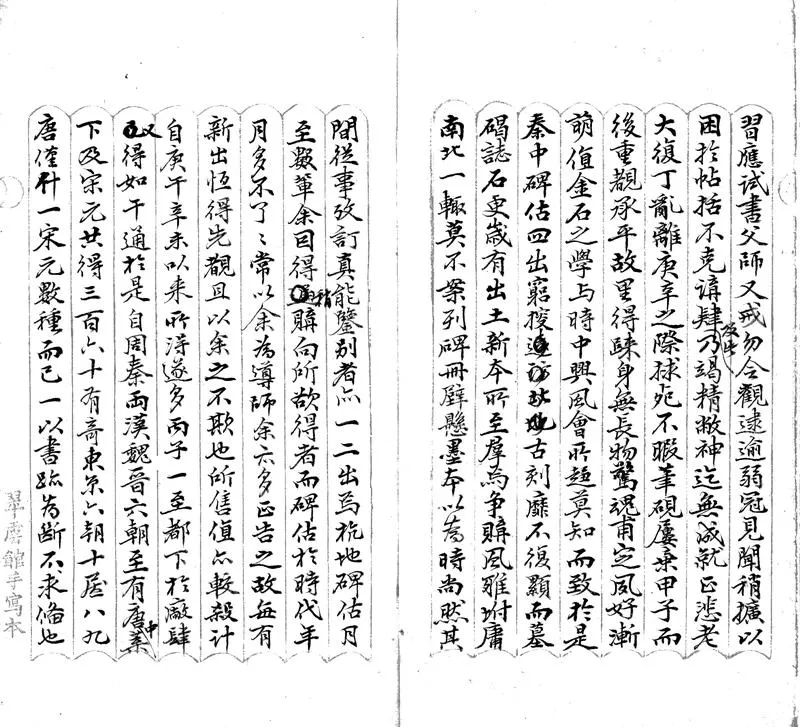 習應試書父師又戒勿令觀逮逾弱冠見聞稍擴以
困於帖括不克講肄及此乃竭精敝神迄無成就正悲老
大復丁亂離庚辛之際救死不暇筆硯屢棄甲子而
後重覩承平故里得踈身無長物驚魂甫定風好漸
萌值金石之學与時中興風會所趨莫知而致於是
秦中碑估四出窮搜古刻靡不復顯而墓
碣誌石更歲有出土新本所至羣為爭購風雅坿庸
南北一轍莫不案列碑冊壁懸墨本以為時尚然其
間從事攷訂真能鑒別者亦一二出焉杭地碑估月
至數輩余因得稍購向所欲得者而碑估於時代年
月多不了〻常以余為導師余亦多正告之故每有
新出恆得先覩且以余之不欺也所售值亦較殺計
自庚午辛未以来所得遂多丙子一至都下於廠肆
又得如干通於是自周秦兩漢魏晉六朝至有唐中葉
下及宋元共得三百六十有奇東京六朝十居八九
唐僅什一宋元數種而已一以書跡為斷不求俻也
翠虏館手寫本